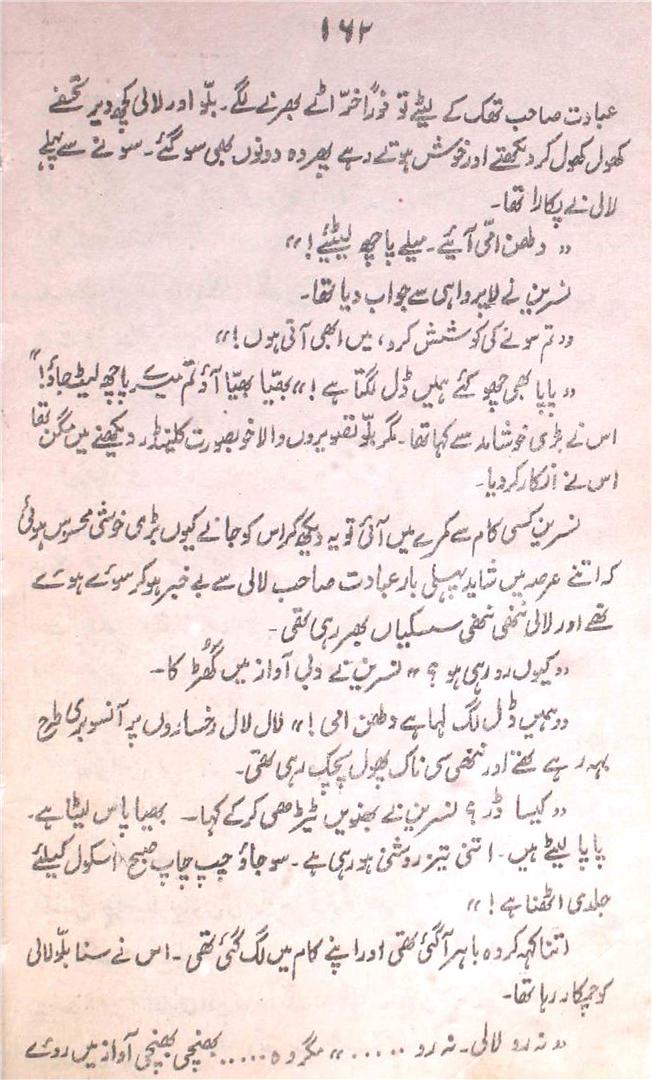 ۱۶۲
عبادت صاحب تھک کے لیٹے تو فوراً خرّاٹے بھرنے لگے۔ بلّو اور لالی کچھ دیر تحفے
کھول کھول کر دیکھتے اور خوش ہوتے رہے پھر وہ دونوں بھی سو گئے۔ سونے سے پہلے
لالی نے پکارا تھا۔
”دلھن امّی آیئے۔ میلے پاچھ لیٹیے!“
نسرین نے لاپرواہی سے جواب دیا تھا۔
”تم سونے کی کوشش کرو، میں ابھی آتی ہوں!“
”پاپا بھی چھو گئے ہمیں ڈل لگتا ہے!“ بھیّا بھیّا آؤ تم میرے پاچھ لیٹ جاؤ!“
اس نے بڑی خوشامد سے کہا تھا۔ مگر بلّو تصویروں والا خوبصورت کلینڈر دیکھنے میں مگن تھا
اس نے انکار کر دیا۔
نسرین کسی کام سے کمرے میں آئی تو یہ دیکھ کر اس کو جانے کیوں بڑی خوشی محسوس ہوئی
کہ اتنے عرصہ میں شاید پہلی بار عبادت صاحب لالی سے بے خبر ہو کر سوئے ہوئے
تھے اور لالی ننھی ننھی سسکیاں بھر رہی تھی۔
”کیوں رو رہی ہو؟“ نسرین نے دبی آواز میں گُھڑکا۔
”ہمیں ڈل لگ لہا ہے دلھن امی!“ لال لال رخساروں پر آنسو بری طرح
بہہ رہے تھے اور ننھی سی ناک پھول پچک رہی تھی۔
”کیسا ڈر؟ نسرین نے بھنویں ٹیڑھی کر کے کہا۔ بھیا پاس لیٹا ہے۔
پاپا لیٹے ہیں۔ اتنی تیز روشنی ہو رہی ہے۔ سو جاؤ چپ چاپ صبح اسکول کیلئے
جلدی اٹھنا ہے!“
اتنا کہہ کر وہ باہر آ گئی تھی اور اپنے کام میں لگ گئی تھی۔ اس نے سنا بلّو لالی
کو چمکار رہا تھا۔
”نہ رو لالی۔ نہ رو .....“ مگر وہ ..... بھنچی بھنچی آواز میں روئے